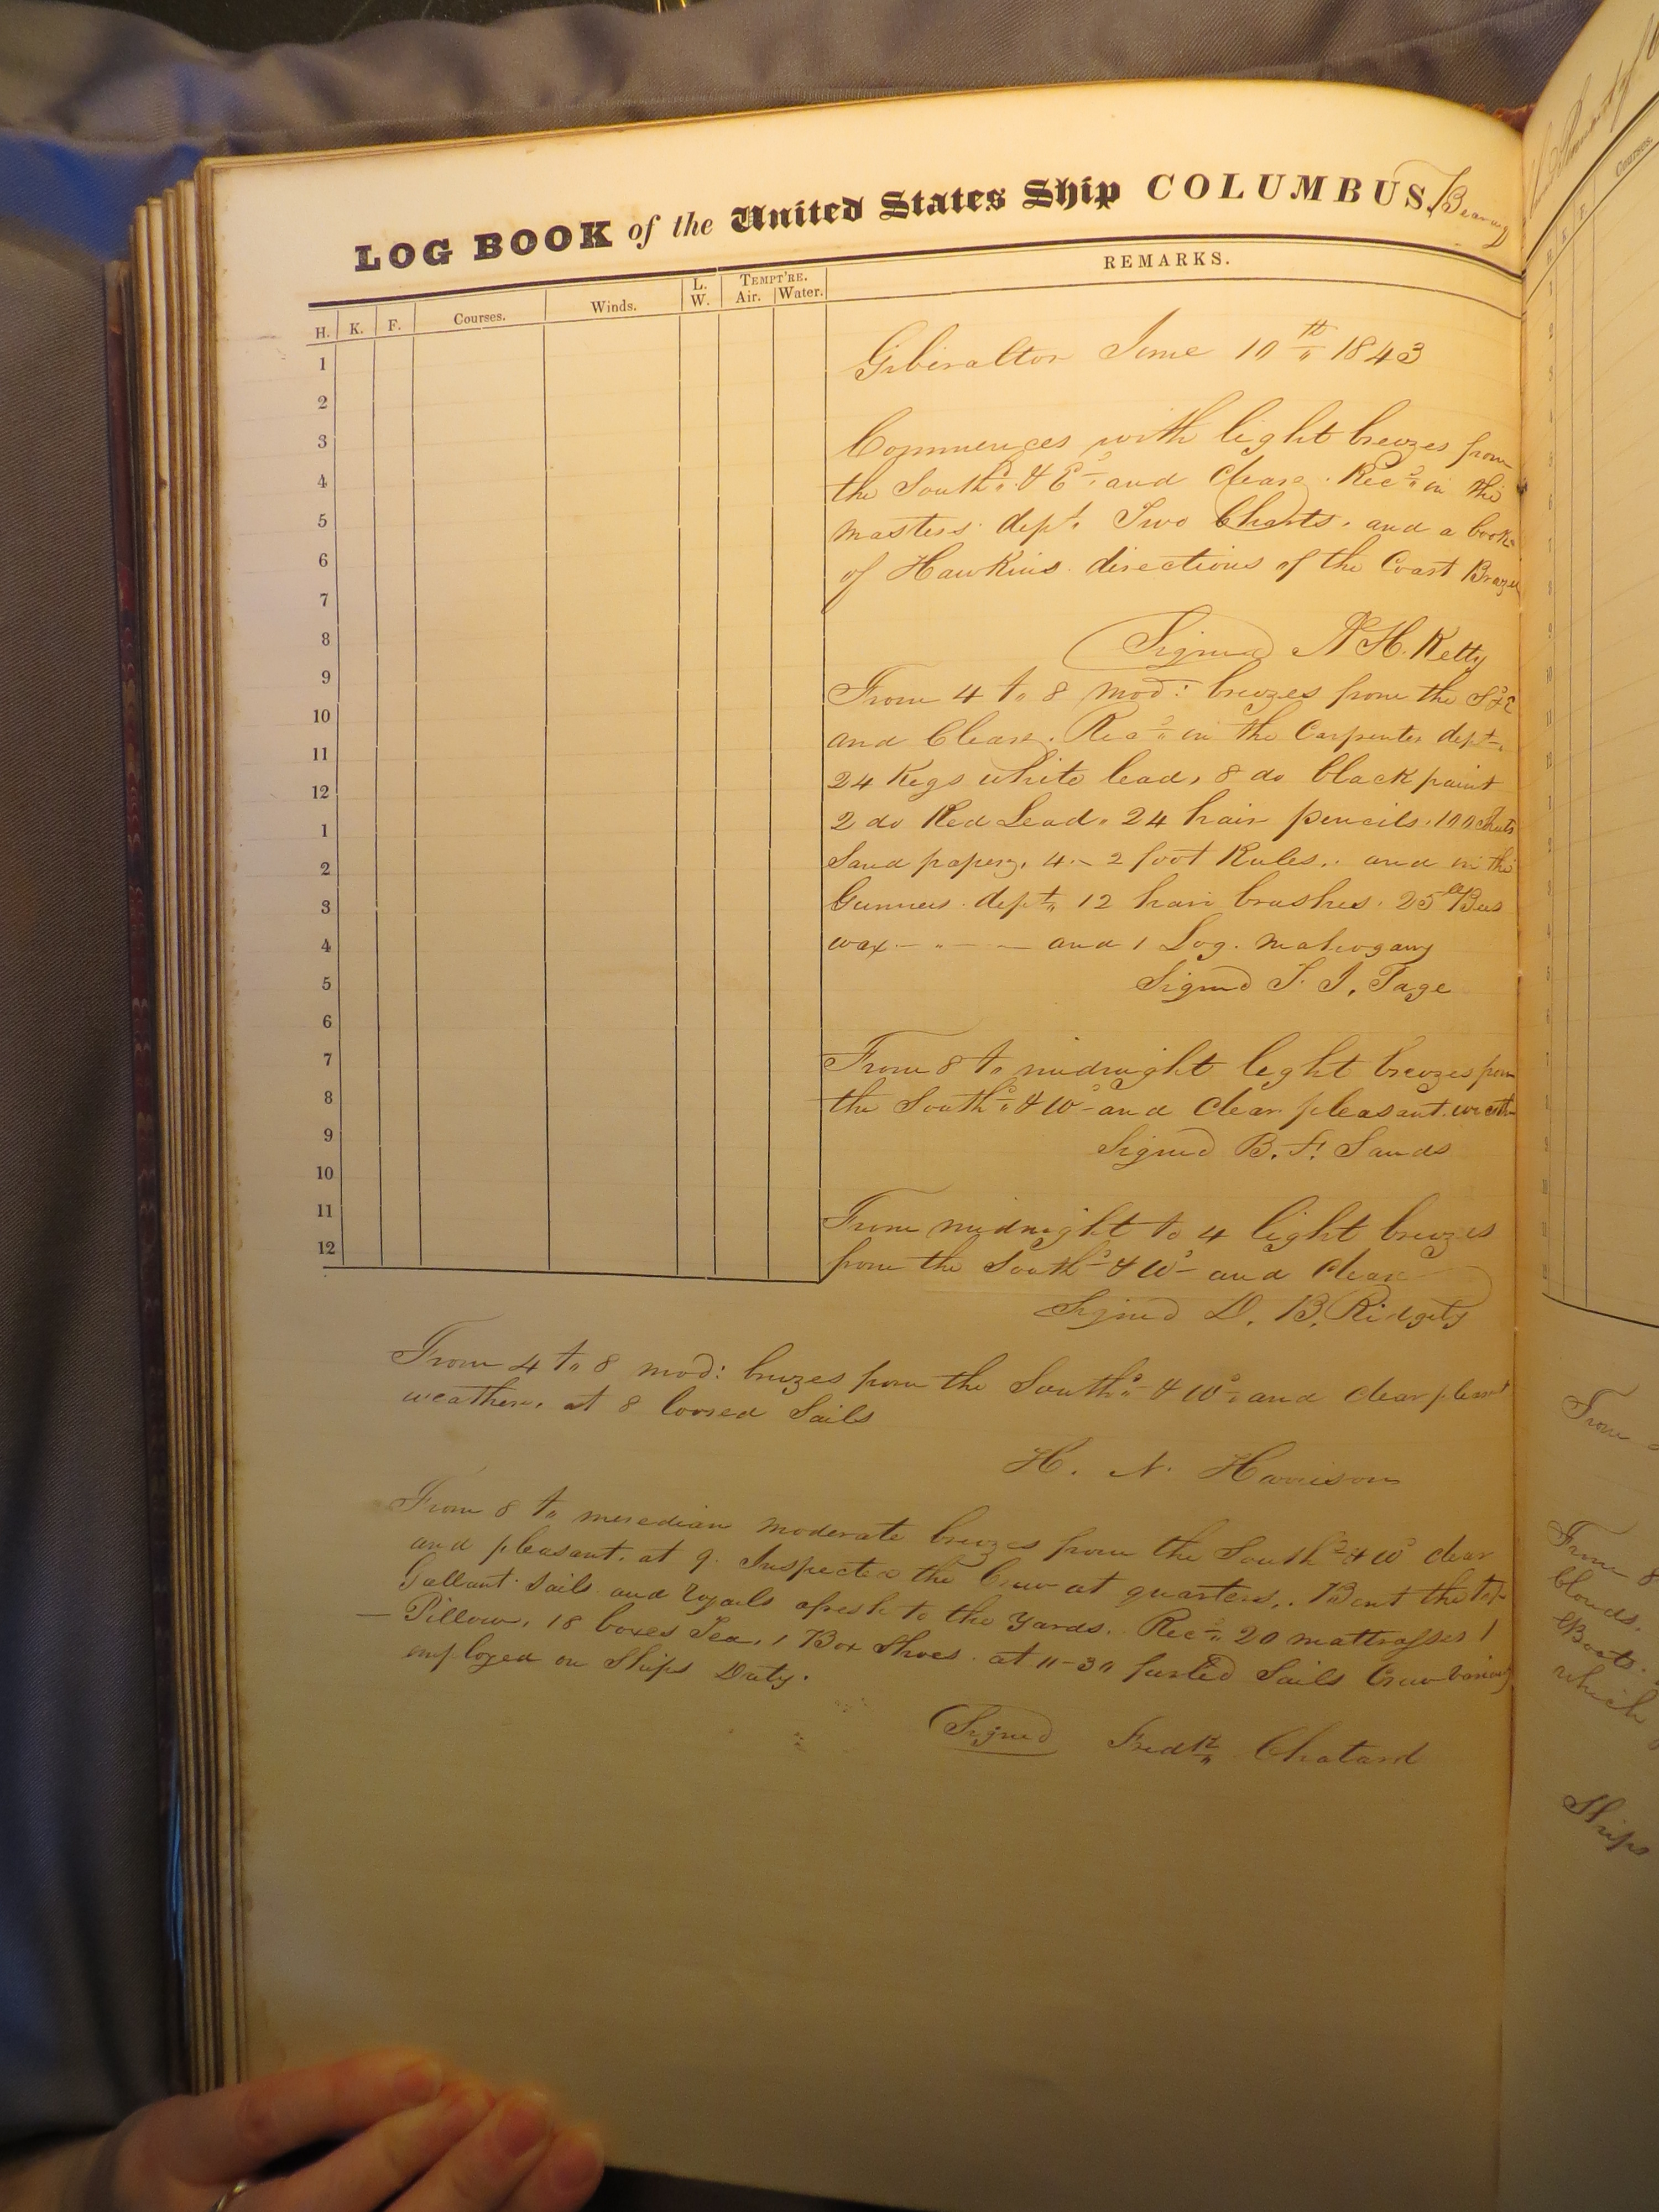 LOG BOOK of the United States Ship COLUMBUS, Bearing
H. K. F. Courses. Winds. L. W. TEMPT'RE. Air. Water. REMARKS.
1
2
3
4
5
6
7
8
9
10
11
12
1
2
3
4
5
6
7
8
9
10
11
12
Giberaltor June 10th 1843
Commences with light breezes from
the Southd & Ed and Clear. Recd in the
masters dept. Two Charts, and a book
of Hawkins directions of the Coast
Signed A H. Kelty
From 4 to 8 mod: breezes from the Sd & E
and Clear. Recd in the Carpenter dept.
24 Kegs white lead, 8 do black paint
2 do Red Lead, 24 hair pencils, 100 sheets
Sand paper, 4 - 2 foot Rules. and in the
Gunners dept. 12 hair brushes. 25 lbs Bees
wax - - - and 1 Log. mahogany
Signed T. J. Page
From 8 to midnight light breezes from
the Southd & Wd and Clear pleasant weath
Signed B. F. Sands
From midnight to 4 light breezes
from the Southd & Wd and Clear
Signed D. B. Ridgely
From 4 to 8 mod: breezes from the Southd & Wd and clear pleasant
weather, at 8 loosed Sails
H. N. Harrison
From 8 to meredian moderate breezes from the Southd & Wd clear
and pleasant. at 9. Inspected the Crew at quarters. Bent the top
Gallant Sails and royals afresh to the Yards. Recd 20 mattrasses 1
Pillow, 18 boxes Tea, 1 Box Shoes. at 11-30 furled Sails Crew
employed on Ships Duty.
Signed Fredk Chatard
Courses
H K F
From
From 8
clouds.
Boats.
which
Ships